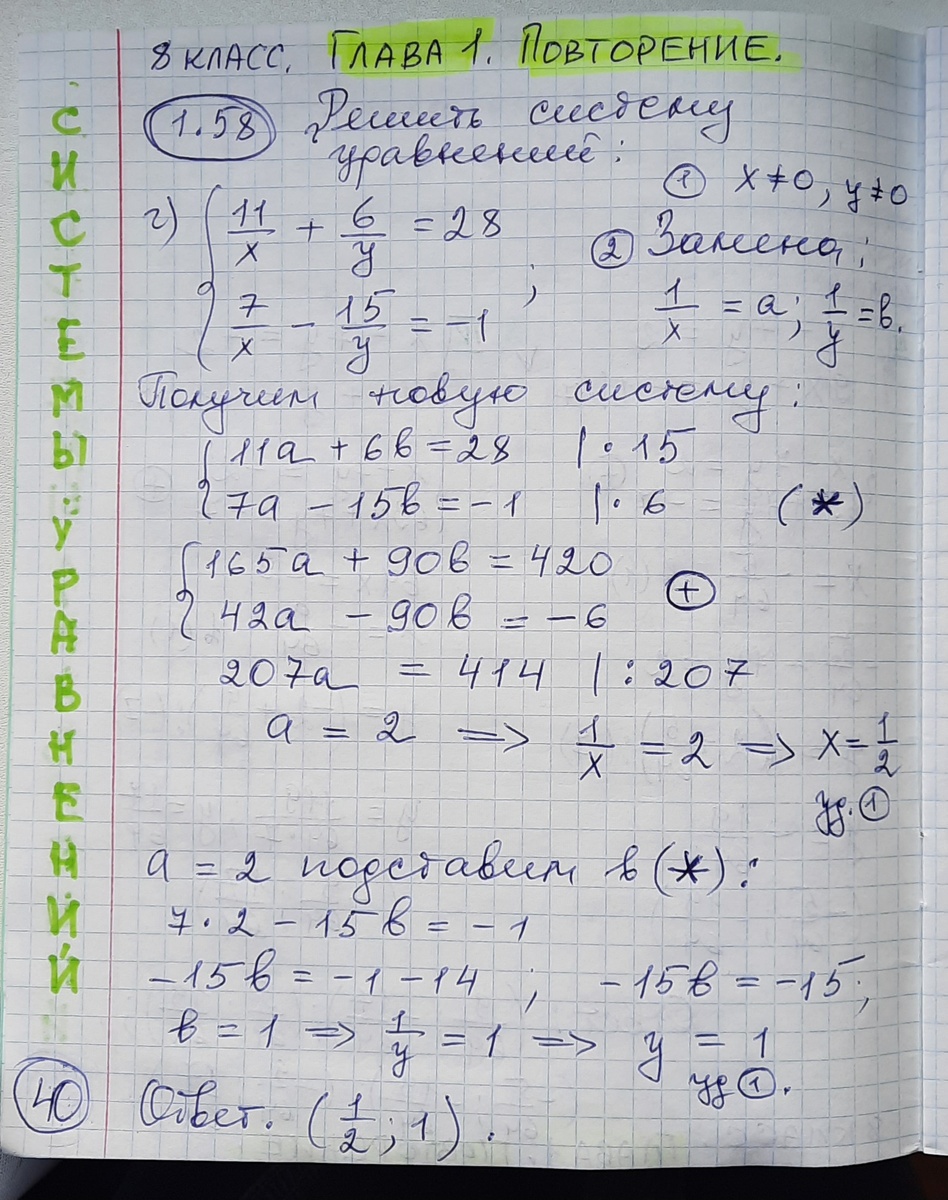 8 КЛАСС. ГЛАВА 1. ПОВТОРЕНИЕ.
СИСТЕМЫ УРАВНЕНИЙ
1.58 Решить систему
уравнений:
① x ≠ 0, y ≠ 0
г) { 11/x + 6/y = 28
7/x − 15/y = −1 ;
② Замена:
1/x = a; 1/y = в.
Получим новую систему:
{ 11a + 6в = 28 | · 15
7a − 15в = −1 | · 6 (*)
{ 165a + 90в = 420
42a − 90в = −6 ⊕
207a = 414 | : 207
a = 2 => 1/x = 2 => x = 1/2
уд. ①
a = 2 подставим в (*) :
7 · 2 − 15в = −1
−15в = −1 − 14 ; −15в = −15 ;
в = 1 => 1/y = 1 => y = 1
уд ①.
40
Ответ. (1/2 ; 1) .